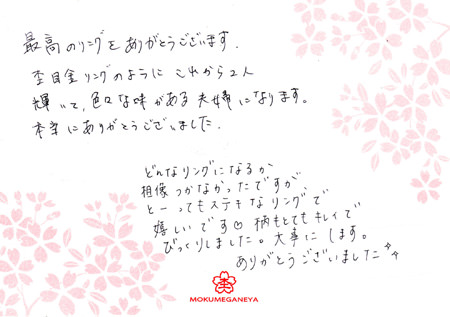 最高のリングをありがとうございます.
杢目金リングのように これから2人
輝いて、色々な味がある夫婦になります。
本当にありがとうございました.
どんなリングになるか
相像つかなかったですが
とーってもステキなリングで
嬉しいです♡ 柄もとてもキレイで
びっくりしました。大事にします。
ありがとうございました
杢
MOKUMEGANEYA